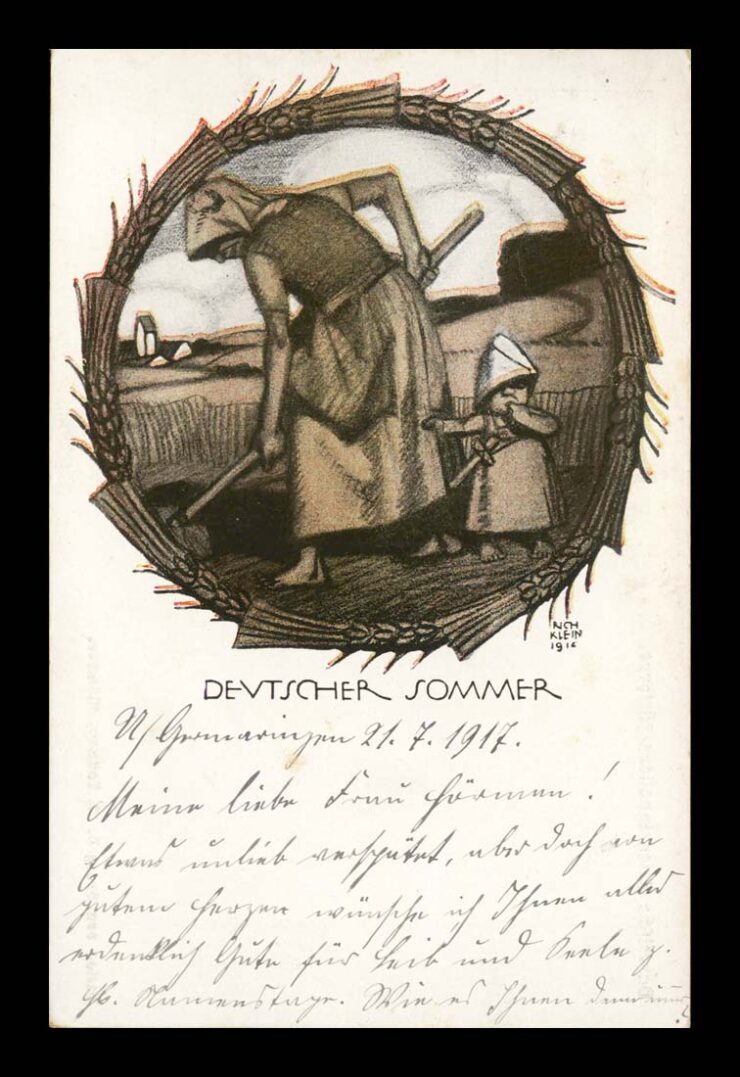 RICH
KLEIN
1916
DEVTSCHER SOMMER
U/Germaringen 21. 7. 1917.
Meine liebe Frau Hörman!
Etwas unlieb verspätet, aber doch von
gutem Herzen wünsche ich Ihnen alles
erdenklich Gute für Leib und Seele z.
hl. Namenstage. Wie es Ihnen denn